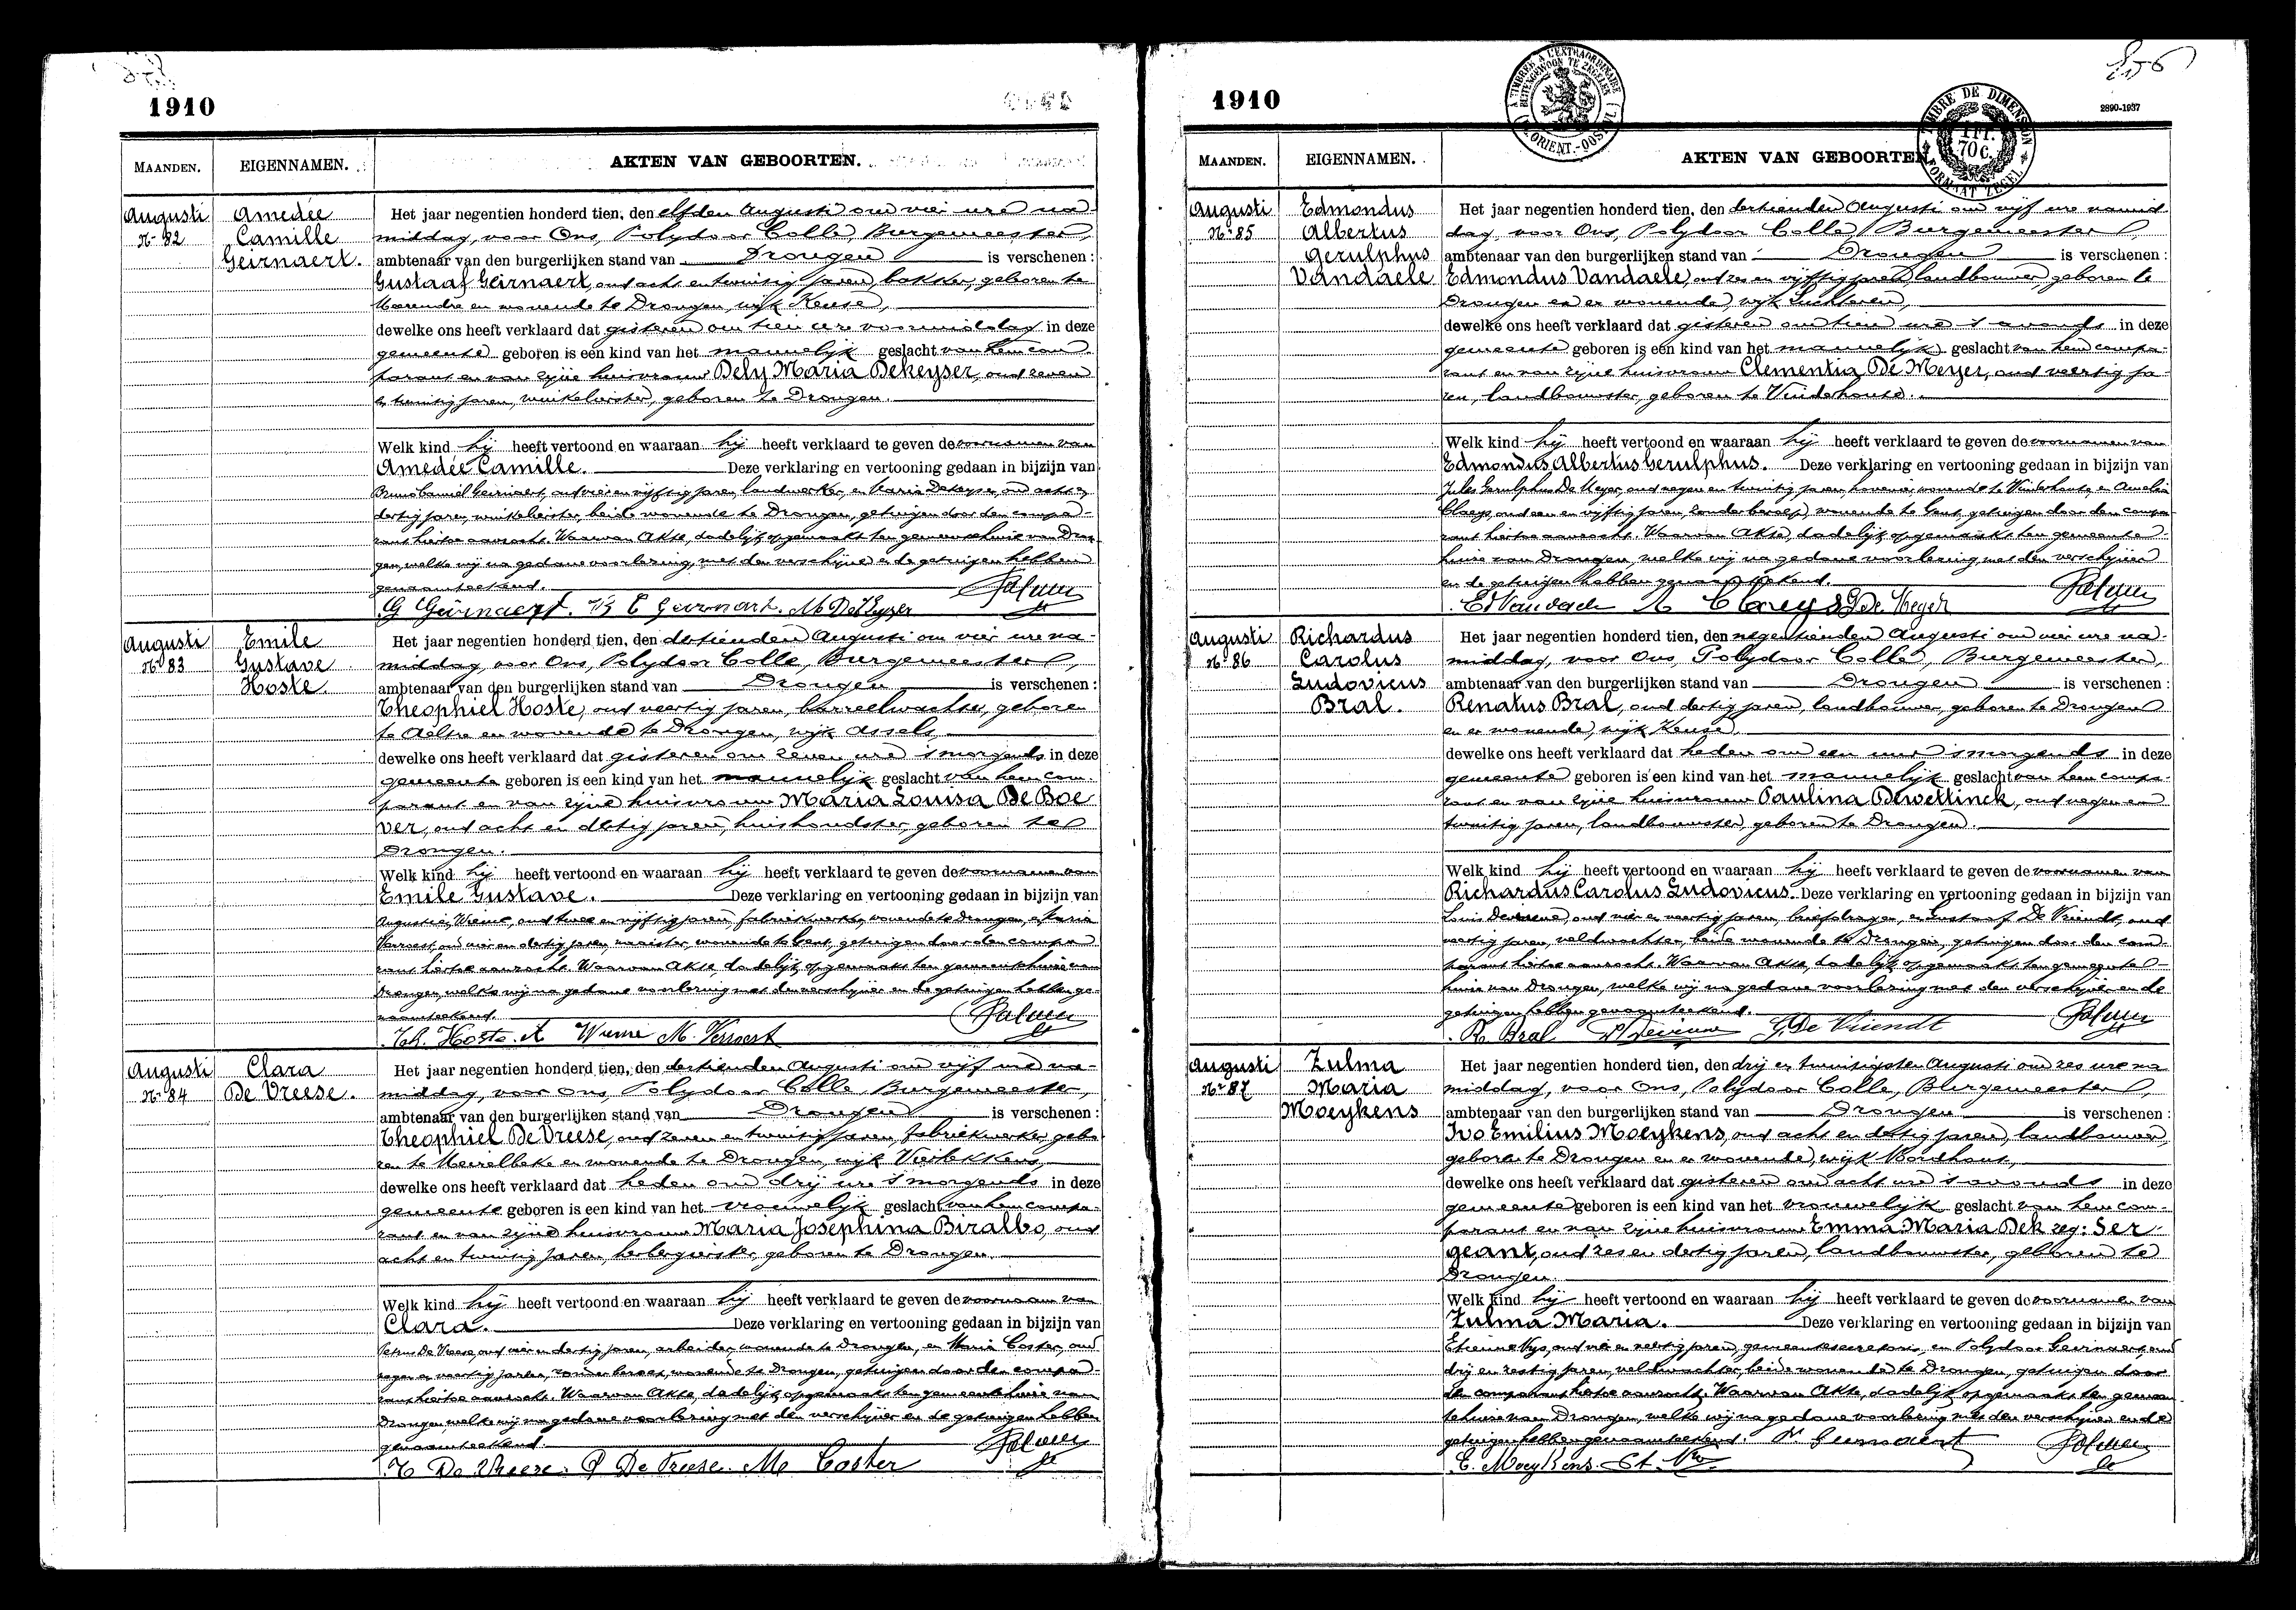 1910
MAANDEN. EIGENNAMEN. AKTEN VAN GEBOORTEN.
Augusti
Nr 82
Amedée
Camille
Geirnaert.
Het jaar negentien honderd tien, den elfden Augusti om vier ure na
middag, voor Ons, Polydoor Colle, Burgemeester,
ambtenaar van den burgerlijken stand van Drongen is verschenen :
Gustaaf Geirnaert, oud acht en twintig jaren, bakker, geboren te
Meerendré en wonende te Drongen, wijk Keuse,
dewelke ons heeft verklaard dat gisteren om tien ure voormiddag in deze
gemeente geboren is een kind van het mannelijk geslacht van hem com-
parant en van zijne huisvrouw Dely Maria Dekeyser, oud zeven
en twintig jaren, winkelierster, geboren te Drongen.
Welk kind hij heeft vertoond en waaraan hij heeft verklaard te geven de voornamen van
Amedée Camille. Deze verklaring en vertooning gedaan in bijzijn van
Geirnaert, oud vier en vijftig jaren, landwerker, en Maria Dekeyser, oud acht en
dertig jaren, winkelierster, beide wonende te Drongen, getuigen door den compa-
rant hiertoe aanzocht. Waarvan Akte, dadelijk opgemaakt ten gemeentehuize van Dron-
gen, welke wij na gedane voorlezing, met den verschijner en de getuigen hebben
genaamteekend.
G Geirnaert. B C Geirnaert. M. DeKeyzer
Augusti
Nr 83
Emile
Gustave
Hoste.
Het jaar negentien honderd tien, den dertienden Augusti om vier ure na-
middag, voor Ons, Polydoor Colle, Burgemeester,
ambtenaar van den burgerlijken stand van Drongen is verschenen :
Theophiel Hoste, oud veertig jaren, barreelwachter, geboren
te Aeltre en wonende te Drongen, wijk Assels,
dewelke ons heeft verklaard dat gisteren om zeven ure 's morgends in deze
gemeente geboren is een kind van het mannelijk geslacht van hem com-
parant en van zijne huisvrouw Maria Louisa De Boe
ver, oud acht en dertig jaren, huishoudster, geboren te
Drongen.
Welk kind hij heeft vertoond en waaraan hij heeft verklaard te geven de voornamen van
Emile Gustave. Deze verklaring en vertooning gedaan in bijzijn van
Wieme, oud twee en vijftig jaren, fabriekwerker, wonende te Drongen, en Maria
Verroest, oud vier en dertig jaren, wonende te Gent, getuigen door den compa-
rant hiertoe aanzocht. Waarvan Akte, dadelijk opgemaakt ten gemeentehuize van
Drongen, welke wij na gedane voorlezing met den verschijner en de getuigen hebben ge-
naamteekend.
Th. Hoste. A Wieme M. Verroest
Augusti
Nr 84
Clara
De Vreese.
Het jaar negentien honderd tien, den dertienden Augusti om vijf ure na-
middag, voor Ons, Polydoor Colle, Burgemeester,
ambtenaar van den burgerlijken stand van Drongen is verschenen :
Theophiel De Vreese, oud zeven en twintig jaren, fabriekwerker, gebo-
ren te Meirelbeke en wonende te Drongen, wijk
dewelke ons heeft verklaard dat heden om drij ure 's morgends in deze
gemeente geboren is een kind van het vrouwelijk geslacht van hem compa-
rant en van zijne huisvrouw Maria Josephina Biralbo, oud
acht en twintig jaren, herbergierster, geboren te Drongen.
Welk kind hij heeft vertoond en waaraan hij heeft verklaard te geven de voornaam van
Clara. Deze verklaring en vertooning gedaan in bijzijn van
Petrus De Vreese, oud vier en dertig jaren, arbeider, wonende te Drongen, en Maria Coster, oud
negen en veertig jaren, zonder beroep, wonende te Drongen, getuigen door den compa-
rant hiertoe aanzocht. Waarvan Akte, dadelijk opgemaakt ten gemeentehuize van
Drongen, welke wij na gedane voorlezing met den verschijner en de getuigen hebben
genaamteekend.
De Vreese. P De Vreese. M. Coster
1910
2890-1937
TIMBRE A L'EXTRAORDINAIRE
BUITENGEWOON TE ZEGELEN
TIMBRE DE DIMENSION
1 FR.
70 C.
FORMAAT ZEGEL
MAANDEN. EIGENNAMEN. AKTEN VAN GEBOORTEN.
Augusti
Nr 85
Edmondus
Albertus
Gerulphus
Vandaele
Het jaar negentien honderd tien, den dertienden Augusti om vijf ure namid
dag, voor Ons, Polydoor Colle, Burgemeester,
ambtenaar van den burgerlijken stand van Drongen is verschenen :
Edmondus Vandaele, oud zes en vijftig jaren, landbouwer, geboren te
Drongen en er wonende, wijk Luchteren,
dewelke ons heeft verklaard dat gisteren om tien ure 's avonds in deze
gemeente geboren is een kind van het mannelijk geslacht van hem compa-
rant en van zijne huisvrouw Clementia De Meyer, oud veertig ja-
ren, landbouwster, geboren te Vinderhoute.
Welk kind hij heeft vertoond en waaraan hij heeft verklaard te geven de voornamen van
Edmondus Albertus Gerulphus. Deze verklaring en vertooning gedaan in bijzijn van
Jules Gerulphus De Meyer, oud negen en twintig jaren, hovenier, wonende te Vinderhoute, en Amelia
Claeys, oud een en vijftig jaren, zonder beroep, wonende te Gent, getuigen door den compa-
rant hiertoe aanzocht. Waarvan Akte, dadelijk opgemaakt ten gemeente-
huize van Drongen, welke wij na gedane voorlezing, met den verschijner
en de getuigen hebben genaamteekend.
Ed Vandaele A Claeys G De Meyer
Augusti
Nr 86
Richardus
Carolus
Ludovicus
Bral.
Het jaar negentien honderd tien, den negentienden Augusti om vier ure na-
middag, voor Ons, Polydoor Colle, Burgemeester,
ambtenaar van den burgerlijken stand van Drongen is verschenen :
Renatus Bral, oud dertig jaren, landbouwer, geboren te Drongen
en er wonende, wijk Keuse,
dewelke ons heeft verklaard dat heden om een uur 's morgends in deze
gemeente geboren is een kind van het mannelijk geslacht van hem compa-
rant en van zijne huisvrouw Paulina Dewettinck, oud negen en
twintig jaren, landbouwster, geboren te Drongen.
Welk kind hij heeft vertoond en waaraan hij heeft verklaard te geven de voornamen van
Richardus Carolus Ludovicus. Deze verklaring en vertooning gedaan in bijzijn van
Louis oud vier en veertig jaren, briefdrager, en Gustaaf De Vriendt, oud
veertig jaren, veldwachter, beide wonende te Drongen, getuigen door den com-
parant hiertoe aanzocht. Waarvan Akte, dadelijk opgemaakt ten gemeente-
huize van Drongen, welke wij na gedane voorlezing met den verschijner en de
getuigen hebben genaamteekend.
R. Bral G. De Vriendt
Augusti
Nr 87
Zulma
Maria
Moeykens
Het jaar negentien honderd tien, den drij en twintigsten Augusti om zes ure na
middag, voor Ons, Polydoor Colle, Burgemeester,
ambtenaar van den burgerlijken stand van Drongen is verschenen :
Ivo Emilius Moeykens, oud acht en dertig jaren, landbouwer,
geboren te Drongen en er wonende, wijk Noordhout,
dewelke ons heeft verklaard dat gisteren om acht ure 's avonds in deze
gemeente geboren is een kind van het vrouwelijk geslacht van hem com-
parant en van zijne huisvrouw Emma Maria Dek zeg: Ser
geant, oud zes en dertig jaren, landbouwster, geboren te
Drongen.
Welk kind hij heeft vertoond en waaraan hij heeft verklaard te geven de voornamen van
Zulma Maria. Deze verklaring en vertooning gedaan in bijzijn van
Etienne Nys, oud vier en veertig jaren, gemeentesecretaris, en Polydoor Geirnaert, oud
drij en zestig jaren, veldwachter, beide wonende te Drongen, getuigen door
de comparant hiertoe aanzocht. Waarvan Akte, dadelijk opgemaakt ten gemeen-
tehuize van Drongen, welke wij na gedane voorlezing met den verschijner en de
getuigen hebben genaamteekend. P. Geirnaert
E. Moeykens. Et. Nys